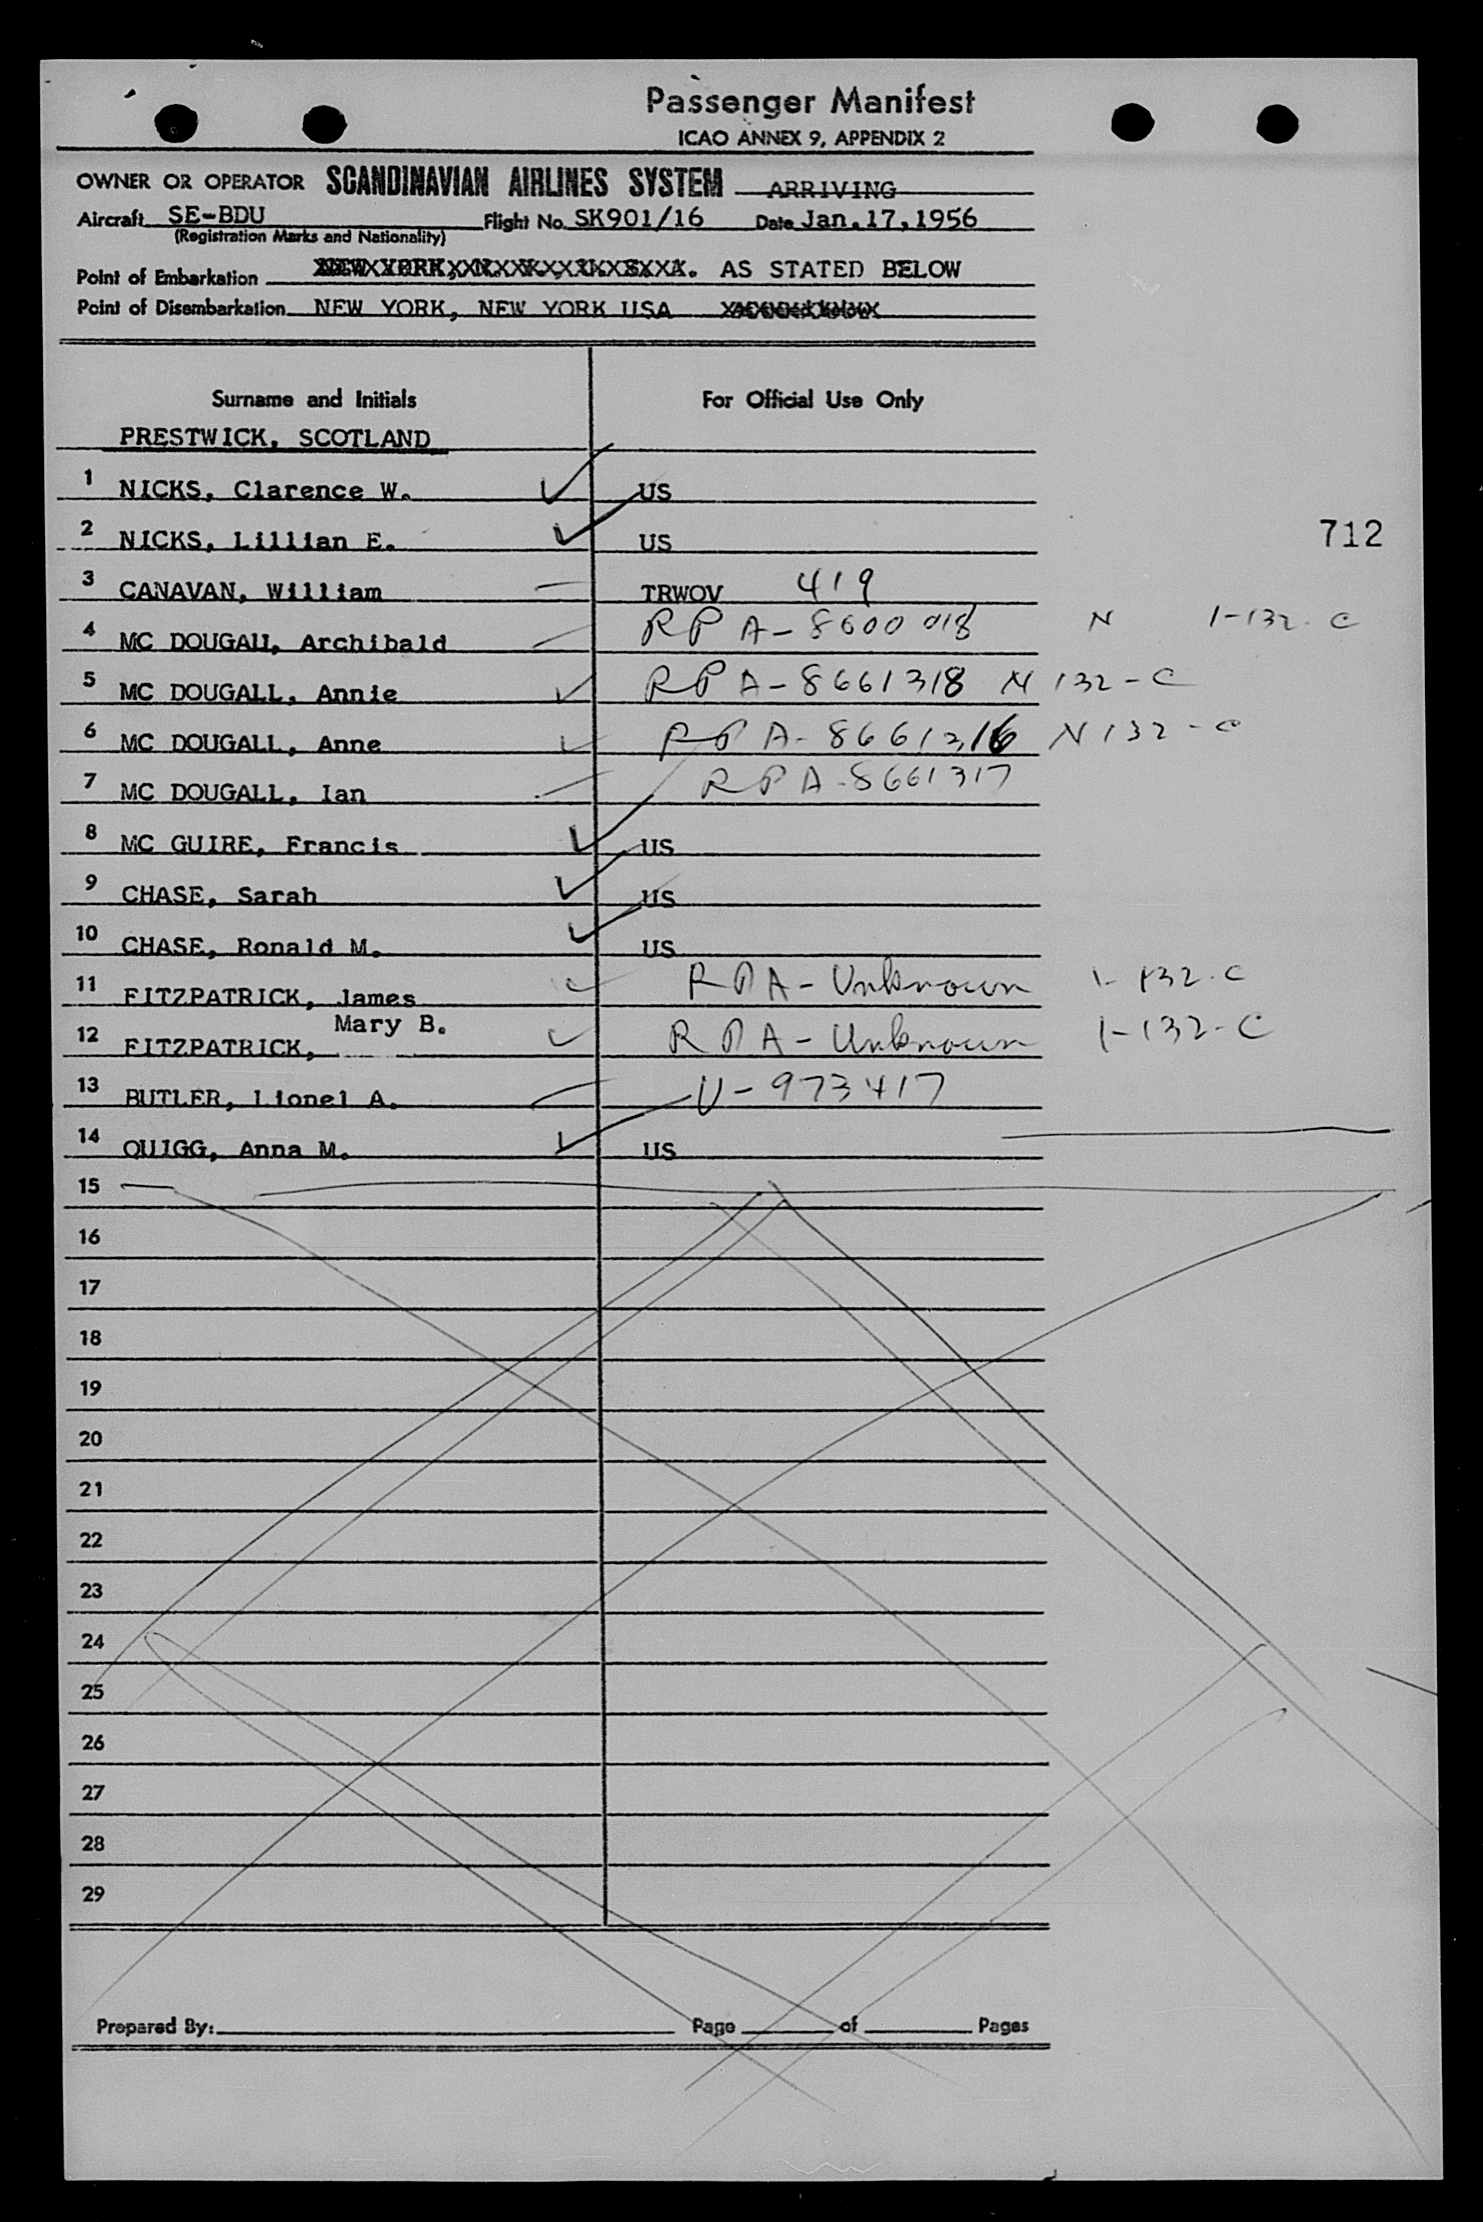 Passenger Manifest
ICAO ANNEX 9, APPENDIX 2
OWNER OR OPERATOR SCANDINAVIAN AIRLINES SYSTEM ARRIVING
Aircraft SE-BDU Flight No. SK901/16 Date Jan.17,1956
(Registration Marks and Nationality)
Point of Embarkation AS STATED BELOW
Point of Disembarkation NEW YORK, NEW YORK USA
Surname and Initials For Official Use Only
PRESTWICK, SCOTLAND
1 NICKS, Clarence W. US
2 NICKS, Lillian E. US
712
3 CANAVAN, William TRWOV 419
4 MC DOUGALL, Archibald RP A-8600018 N 1-132-C
5 MC DOUGALL, Annie RP A-8661318 N 132-C
6 MC DOUGALL, Anne RP A-8661316 N 132-C
7 MC DOUGALL, Ian RP A-8661317
8 MC GUIRE, Francis US
9 CHASE, Sarah US
10 CHASE, Ronald M. US
11 FITZPATRICK, James RP A-Unknown 1-132-C
Mary B.
12 FITZPATRICK, RP A-Unknown 1-132-C
13 BUTLER, Lionel A. V-973417
14 QUIGG, Anna M. US
15
16
17
18
19
20
21
22
23
24
25
26
27
28
29
Prepared By: Page of Pages